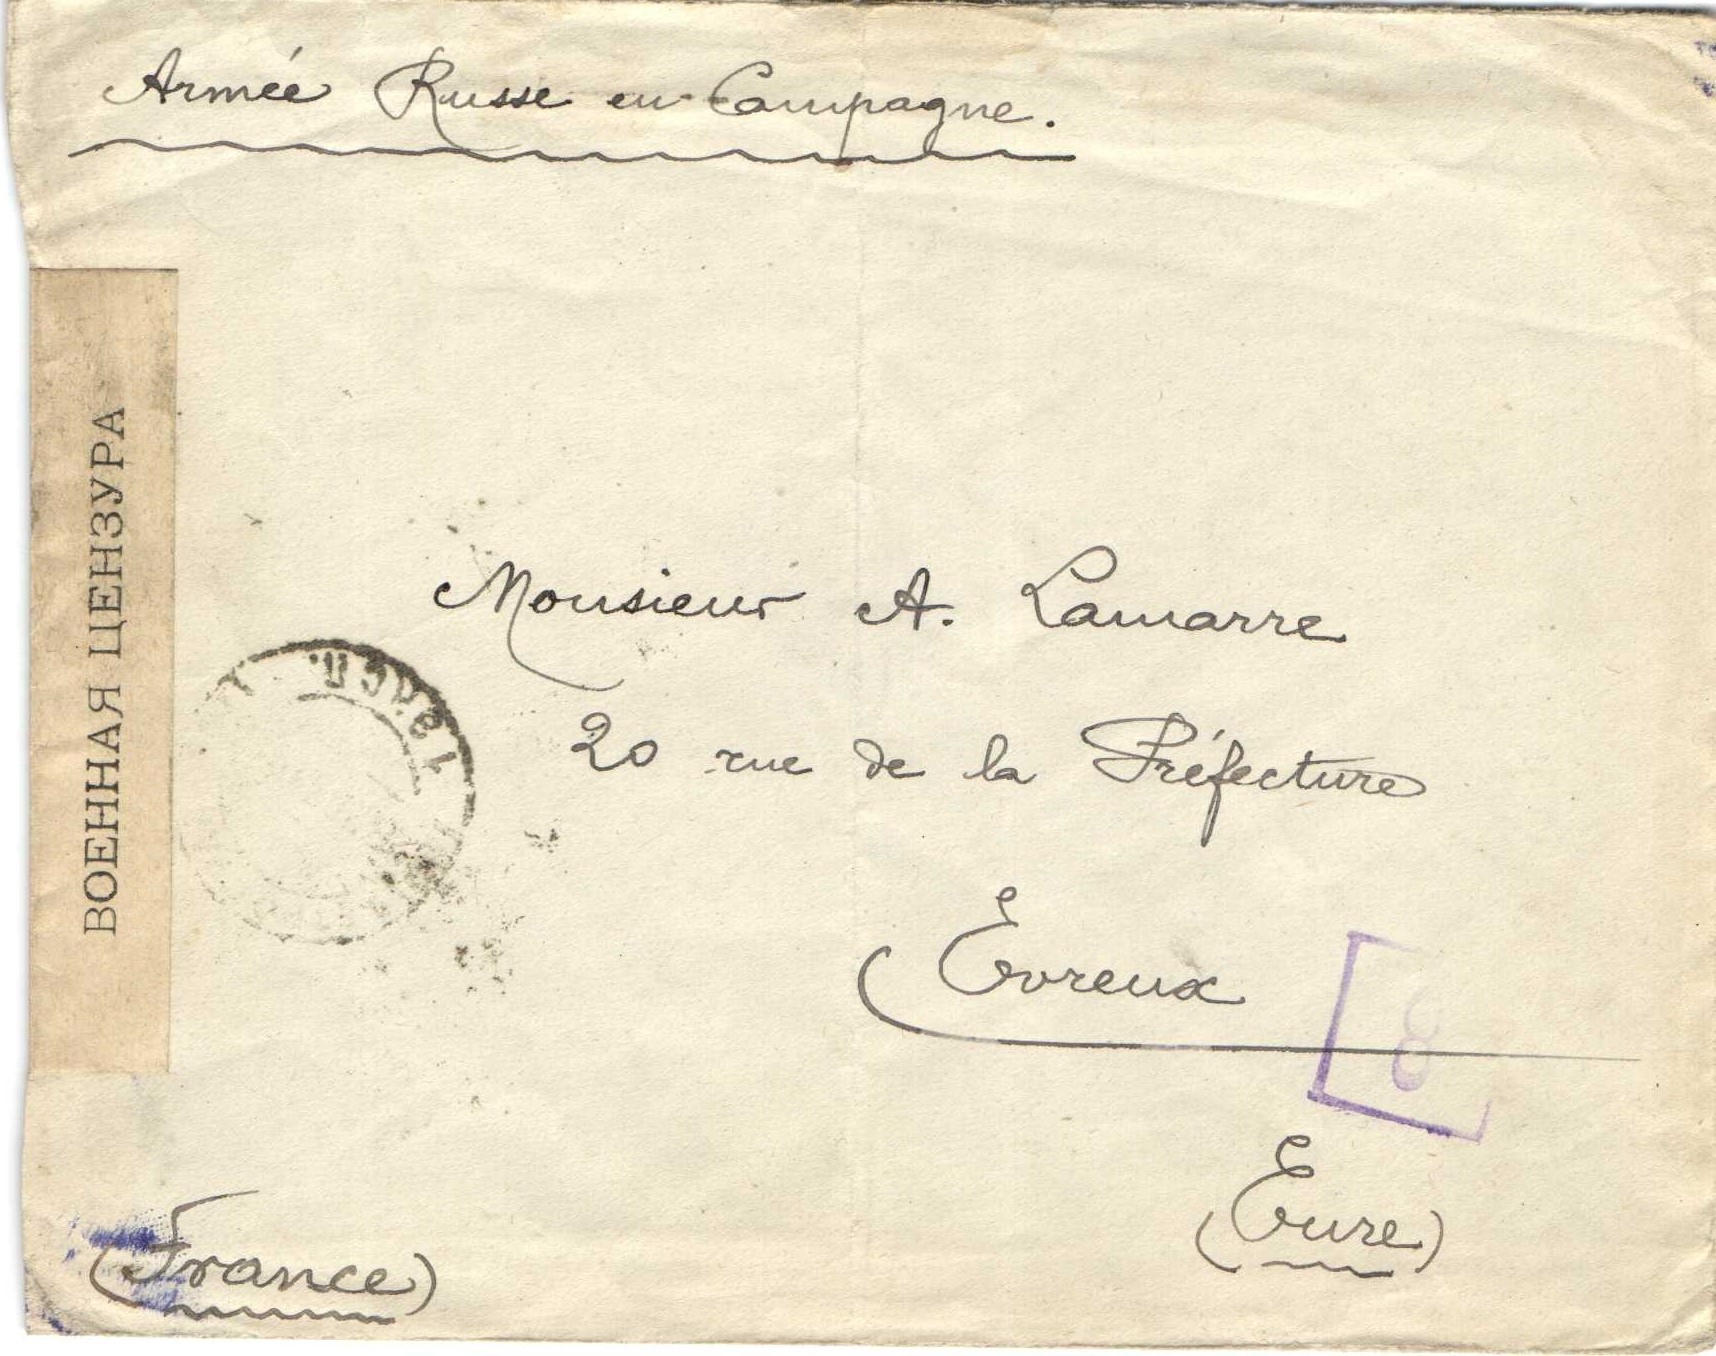 Armée Russe en Campagne.
ВОЕННАЯ ЦЕНЗУРА
Monsieur A. Lamarre
20 rue de la Préfecture
Evreux
(Eure)
(France)